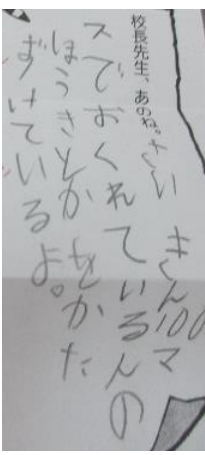 校長先生、あのね。さいきん100マ
スでおくれているんの
ほうきとかをかた
ずけているよ。